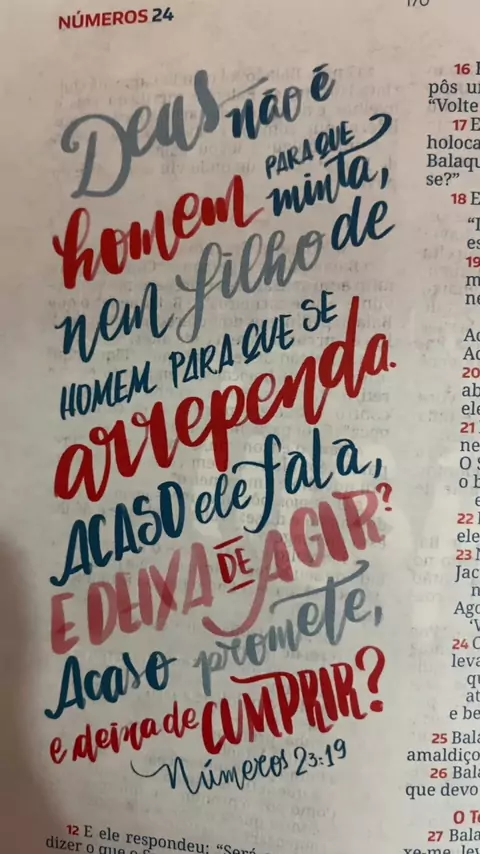 NÚMEROS 24
170
Deus não é
homem PARA QUE
minta,
nem filho de
HOMEM PARA QUE SE
arrependa.
ACASO ele fala,
E DEIXA DE AGIR?
Acaso promete,
e deixa de CUMPRIR?
Números 23:19
12 E ele respondeu: “Será
dizer o que o
16
pôs
“Volte
17 E
holoca
Balaqu
se?”
18 E
19
20
ab
ele
21
ne
O S
o b
e
22
ele
23 N
Jac
Ago
24 O
leva
qu
at
e be
25 Bala
amaldiço
26 Bala
que devo
O Te
27 Bala
xe-me lev